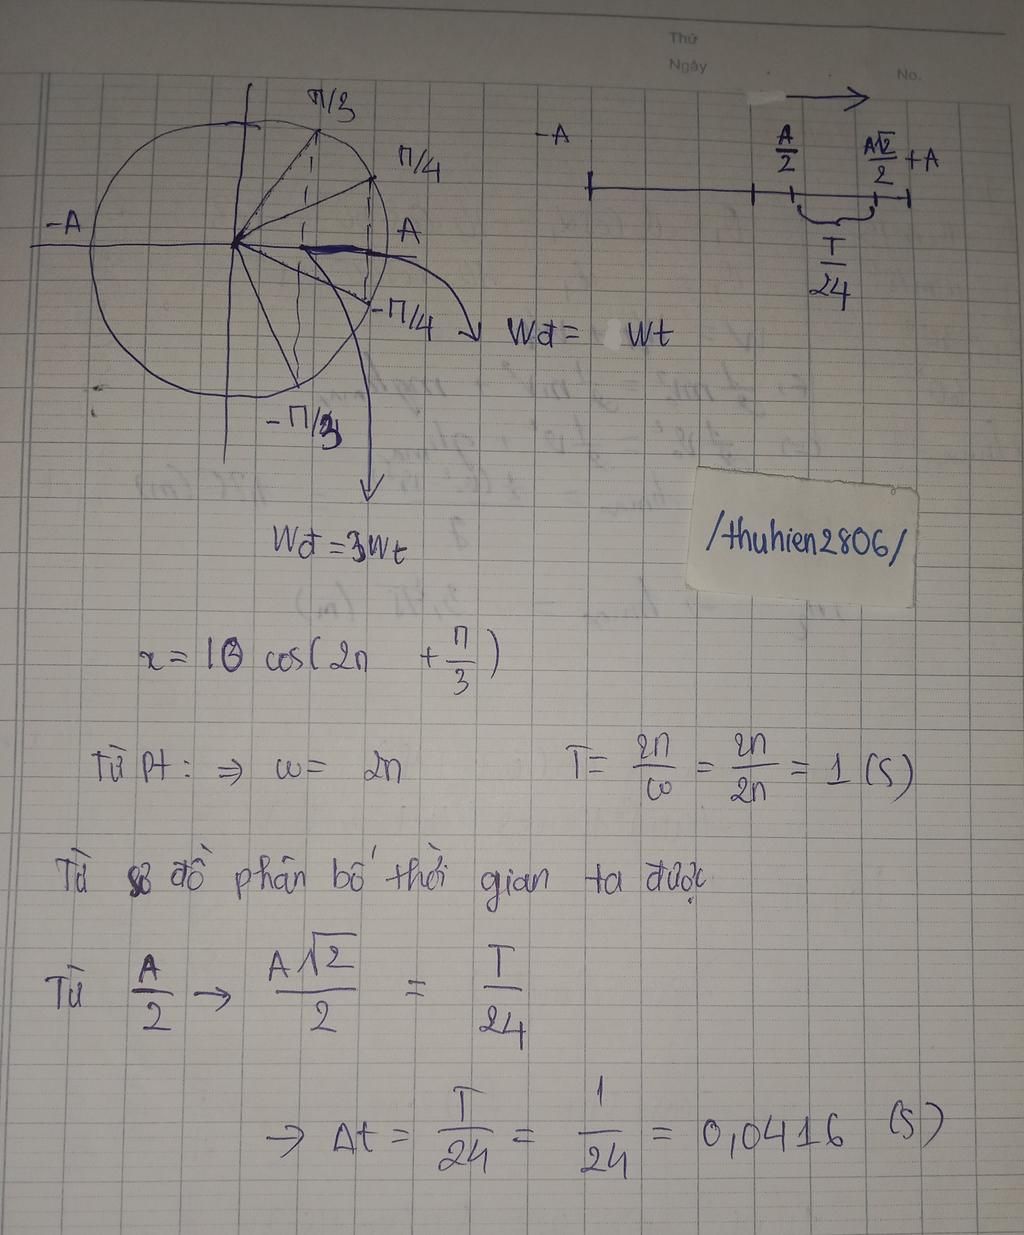 Thứ
Ngày
No.
π/3
π/4
-A
A
-π/4
-π/3
Wđ = Wt
Wđ = 3Wt
-A
A/2
A√2/2
+A
T/24
/thuhien2806/
x = 10 cos( 2π + π/3 )
Từ Pt : ⇒ ω = 2π T = 2π/ω = 2π/2π = 1 (s)
Từ sơ đồ phân bố thời gian ta được
Từ A/2 → A√2/2 = T/24
→ Δt = T/24 = 1/24 = 0,0416 (s)